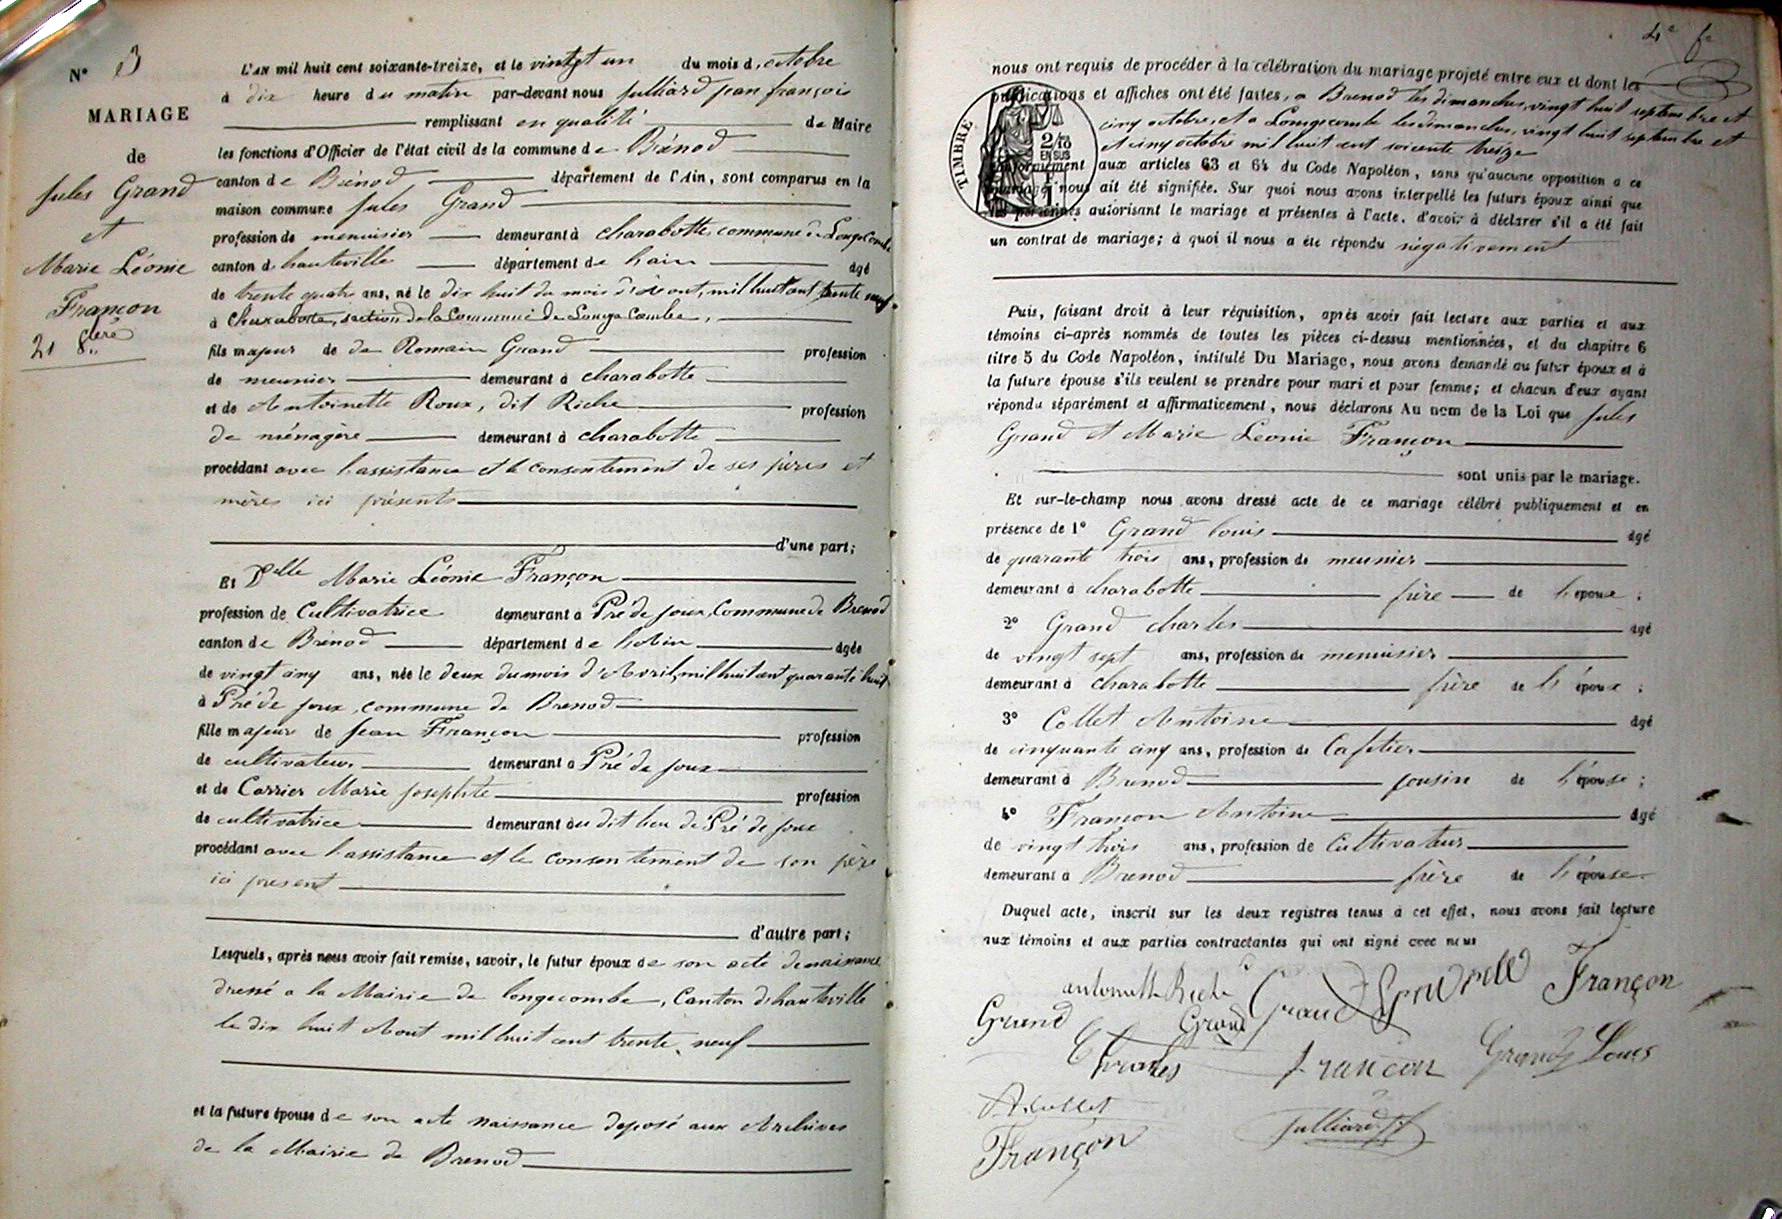 N° 3
MARIAGE
de
Jules Grand
et
Marie Léonie
Françon
21 8bre
L'AN mil huit cent soixante-treize, et le vingt un du mois d'octobre
à dix heure du matin par-devant nous Julliard Jean françois
remplissant en qualité de Maire
les fonctions d'Officier de l'état civil de la commune de Brénod
canton de Brénod département de l'Ain, sont comparus en la
maison commune Jules Grand
profession de menuisier demeurant à charabotte, commune de Longecombe
canton d'hauteville département de hain âgé
de trente quatre ans, né le dix huit du mois d'Aout, mil huit cent trente neuf
à Charabotte, section de la Commune de Longe Combe,
fils majeur de de Romain Grand profession
de meunier demeurant à charabotte
et de Antoinette Roux, dit Riche profession
de ménagère demeurant à charabotte
procédant avec l'assistance et le consentement de ses pères et
mères ici présents
d'une part;
Et Delle Marie Léonie Françon
profession de Cultivatrice demeurant à Pré de joux, Commune de Brenod
canton de Brénod département de âgée
de vingt cinq ans, née le deux du mois d'Avril, mil huit cent quarante huit
à Pré de joux, commune de Brenod
fille majeure de Jean Françon profession
de cultivateur demeurant à Pré de joux
et de Carrier Marie Josephte profession
de cultivatrice demeurant au dit lieu de Pré de joux
procédant avec l'assistance et le consentement de son père
ici present
d'autre part;
Lesquels, après nous avoir fait remise, savoir, le futur époux de son acte de naissance
dressé a la Mairie de longecombe, Canton d'hauteville
le dix huit Aout mil huit cent trente neuf
et la future épouse de son acte naissance deposé aux Archives
de la Mairie de Brenod
4e fe
nous ont requis de procéder à la célébration du mariage projeté entre eux et dont les
publications et affiches ont été faites, a Brenod les dimanches, vingt huit septembre et
cinq octobre, et a Longecombe les dimanches, vingt huit septembre et
et cinq octobre mil huit cent soixante treize
conformément aux articles 63 et 64 du Code Napoléon, sans qu'aucune opposition a ce
mariage nous ait été signifiée. Sur quoi nous avons interpellé les futurs époux ainsi que
les personnes autorisant le mariage et présentes à l'acte, d'avoir à déclarer s'il a été fait
un contrat de mariage; à quoi il nous a été répondu négativement
TIMBRE
2/10
EN SUS
1 F
Puis, faisant droit à leur réquisition, après avoir fait lecture aux parties et aux
témoins ci-après nommés de toutes les pièces ci-dessus mentionnées, et du chapitre 6
titre 5 du Code Napoléon, intitulé Du Mariage, nous avons demandé au futur époux et à
la future épouse s'ils veulent se prendre pour mari et pour femme; et chacun d'eux ayant
répondu séparément et affirmativement, nous déclarons Au nom de la Loi que Jules
Grand et Marie Leonie Françon
sont unis par le mariage.
Et sur-le-champ nous avons dressé acte de ce mariage célébré publiquement et en
présence de 1° Grand Louis âgé
de quarante trois ans, profession de meunier
demeurant à charabotte frère de l'époux;
2° Grand charles âgé
de vingt sept ans, profession de menuisier
demeurant à charabotte frère de l'époux;
3° Collet Antoine âgé
de cinquante cinq ans, profession de Cafetier
demeurant à Brenod cousin de l'épouse;
4° Françon Antoine âgé
de vingt trois ans, profession de Cultivateur
demeurant à Brenod frère de l'épouse
Duquel acte, inscrit sur les deux registres tenus à cet effet, nous avons fait lecture
aux témoins et aux parties contractantes qui ont signé avec nous
antoinette Riche Grand Françon
Grand Grand
Charles françon Grand Louis
A. Collet Julliard J f
Françon